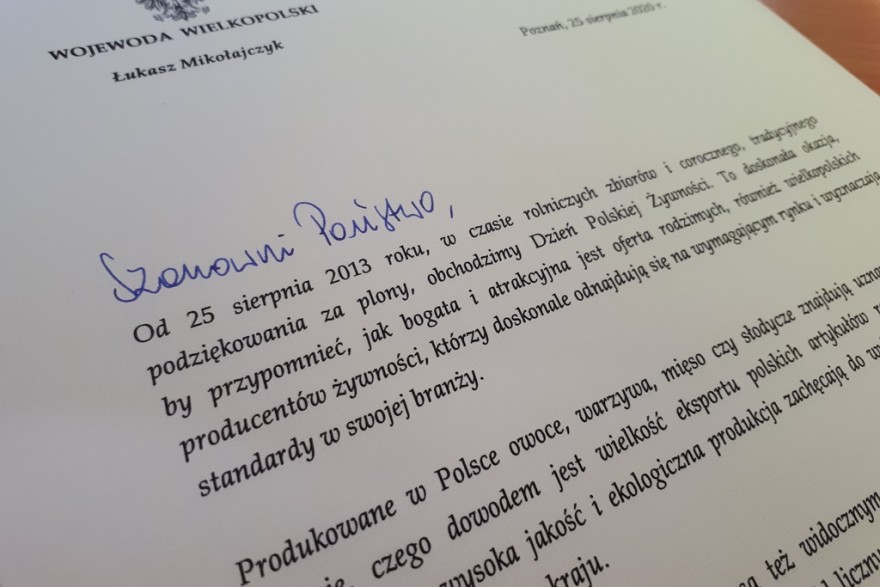 WOJEWODA WIELKOPOLSKI
Łukasz Mikołajczyk
Poznań, 25 sierpnia 2020 r.
Szanowni Państwo,
Od 25 sierpnia 2013 roku, w czasie rolniczych zbiorów i corocznego, tradycyjnego
podziękowania za plony, obchodzimy Dzień Polskiej Żywności. To doskonała okazja,
by przypomnieć, jak bogata i atrakcyjna jest oferta rodzimych, również wielkopolskich
producentów żywności, którzy doskonale odnajdują się na wymagającym rynku i wyznaczają
standardy w swojej branży.
Produkowane w Polsce owoce, warzywa, mięso czy słodycze znajdują
czego dowodem jest wielkość eksportu polskich artykułów
wysoka jakość i ekologiczna produkcja zachęcają do
kraju.
też widocznym